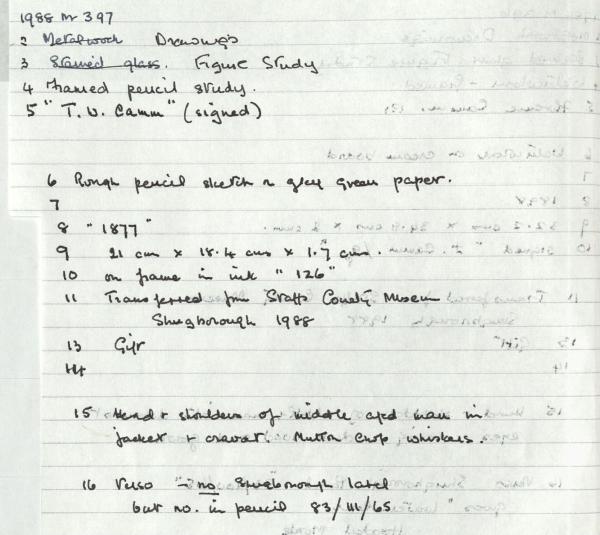 1988 M 397
2 Metalwork Drawings
3 Stained glass. Figure Study
4 Framed pencil study.
5 "T. W. Camm" (signed)
6 Rough pencil sketch on grey green paper.
7
8 "1877"
9 21 cm x 18.4 cms x 1.7 cms.
10 on frame in ink "126"
11 Transferred from Staffs County Museum
Shugborough 1988
13 Gift
14
15 Head + shoulders of middle aged man in
jacket + cravat. Mutton chop whiskers.
16 Verso - no Shugborough label
but no. in pencil 83/111/65